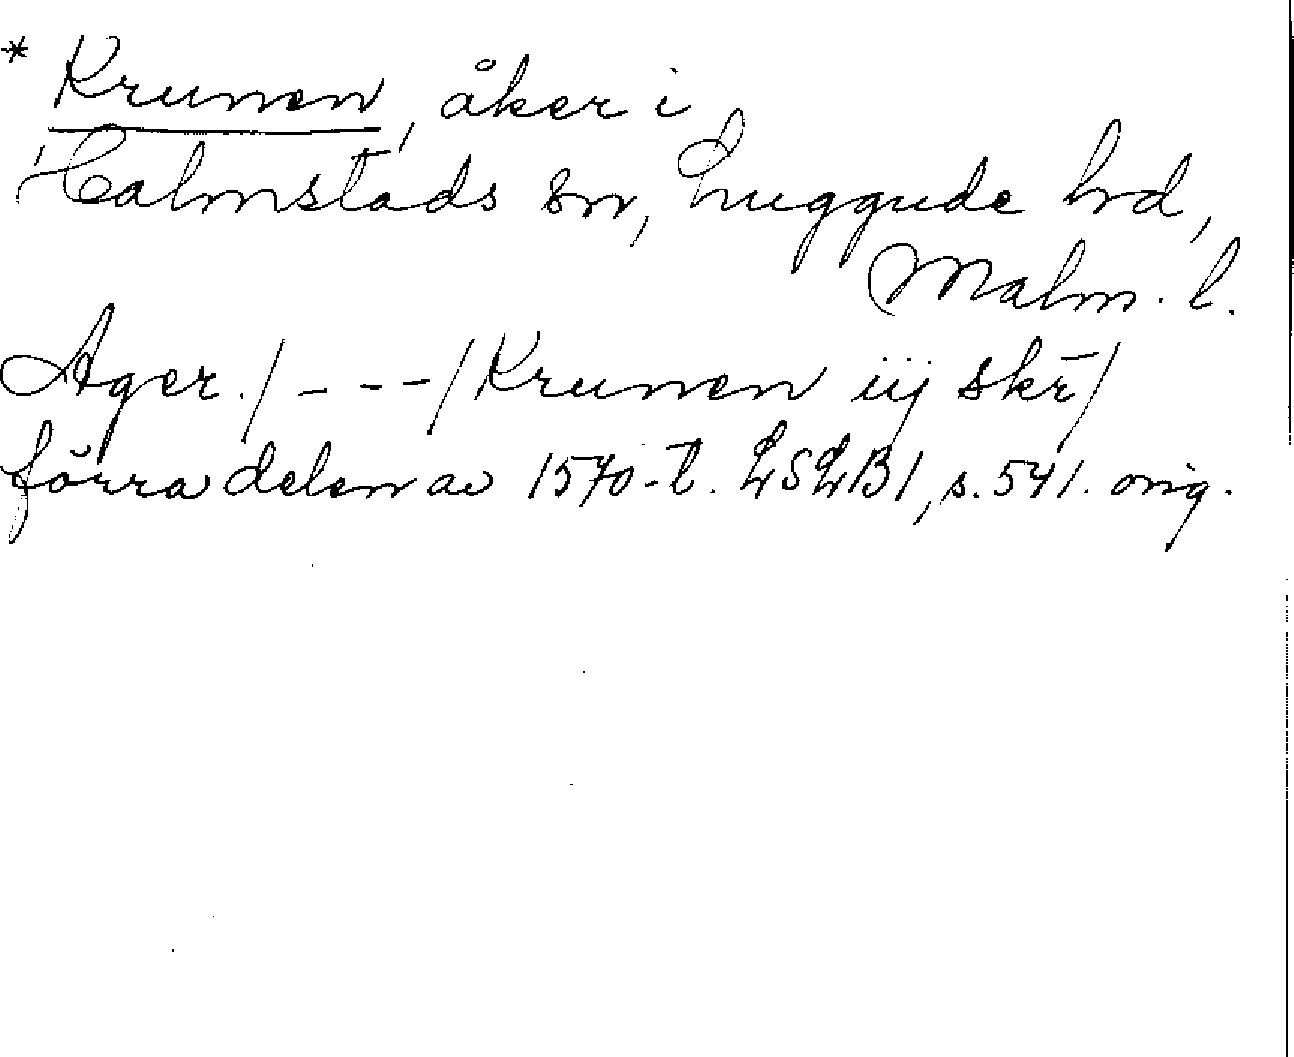 * Krunen, åker i
Halmstads sn, Luggude hd,
Malm. l.
Ager. / - - - / Krunen iij skr̄ /
förra delen av 1570-t. LSLB1, s. 541. orig.